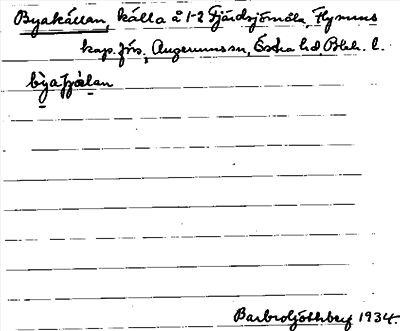 Byakällan, källa å 1-2 Fjärdsjömåla, Flymens
kap. förs., Augerums sn, Östra hd, Blek. l.
by̱aʃjæ̱lan
Barbro Ljöthberg 1934.